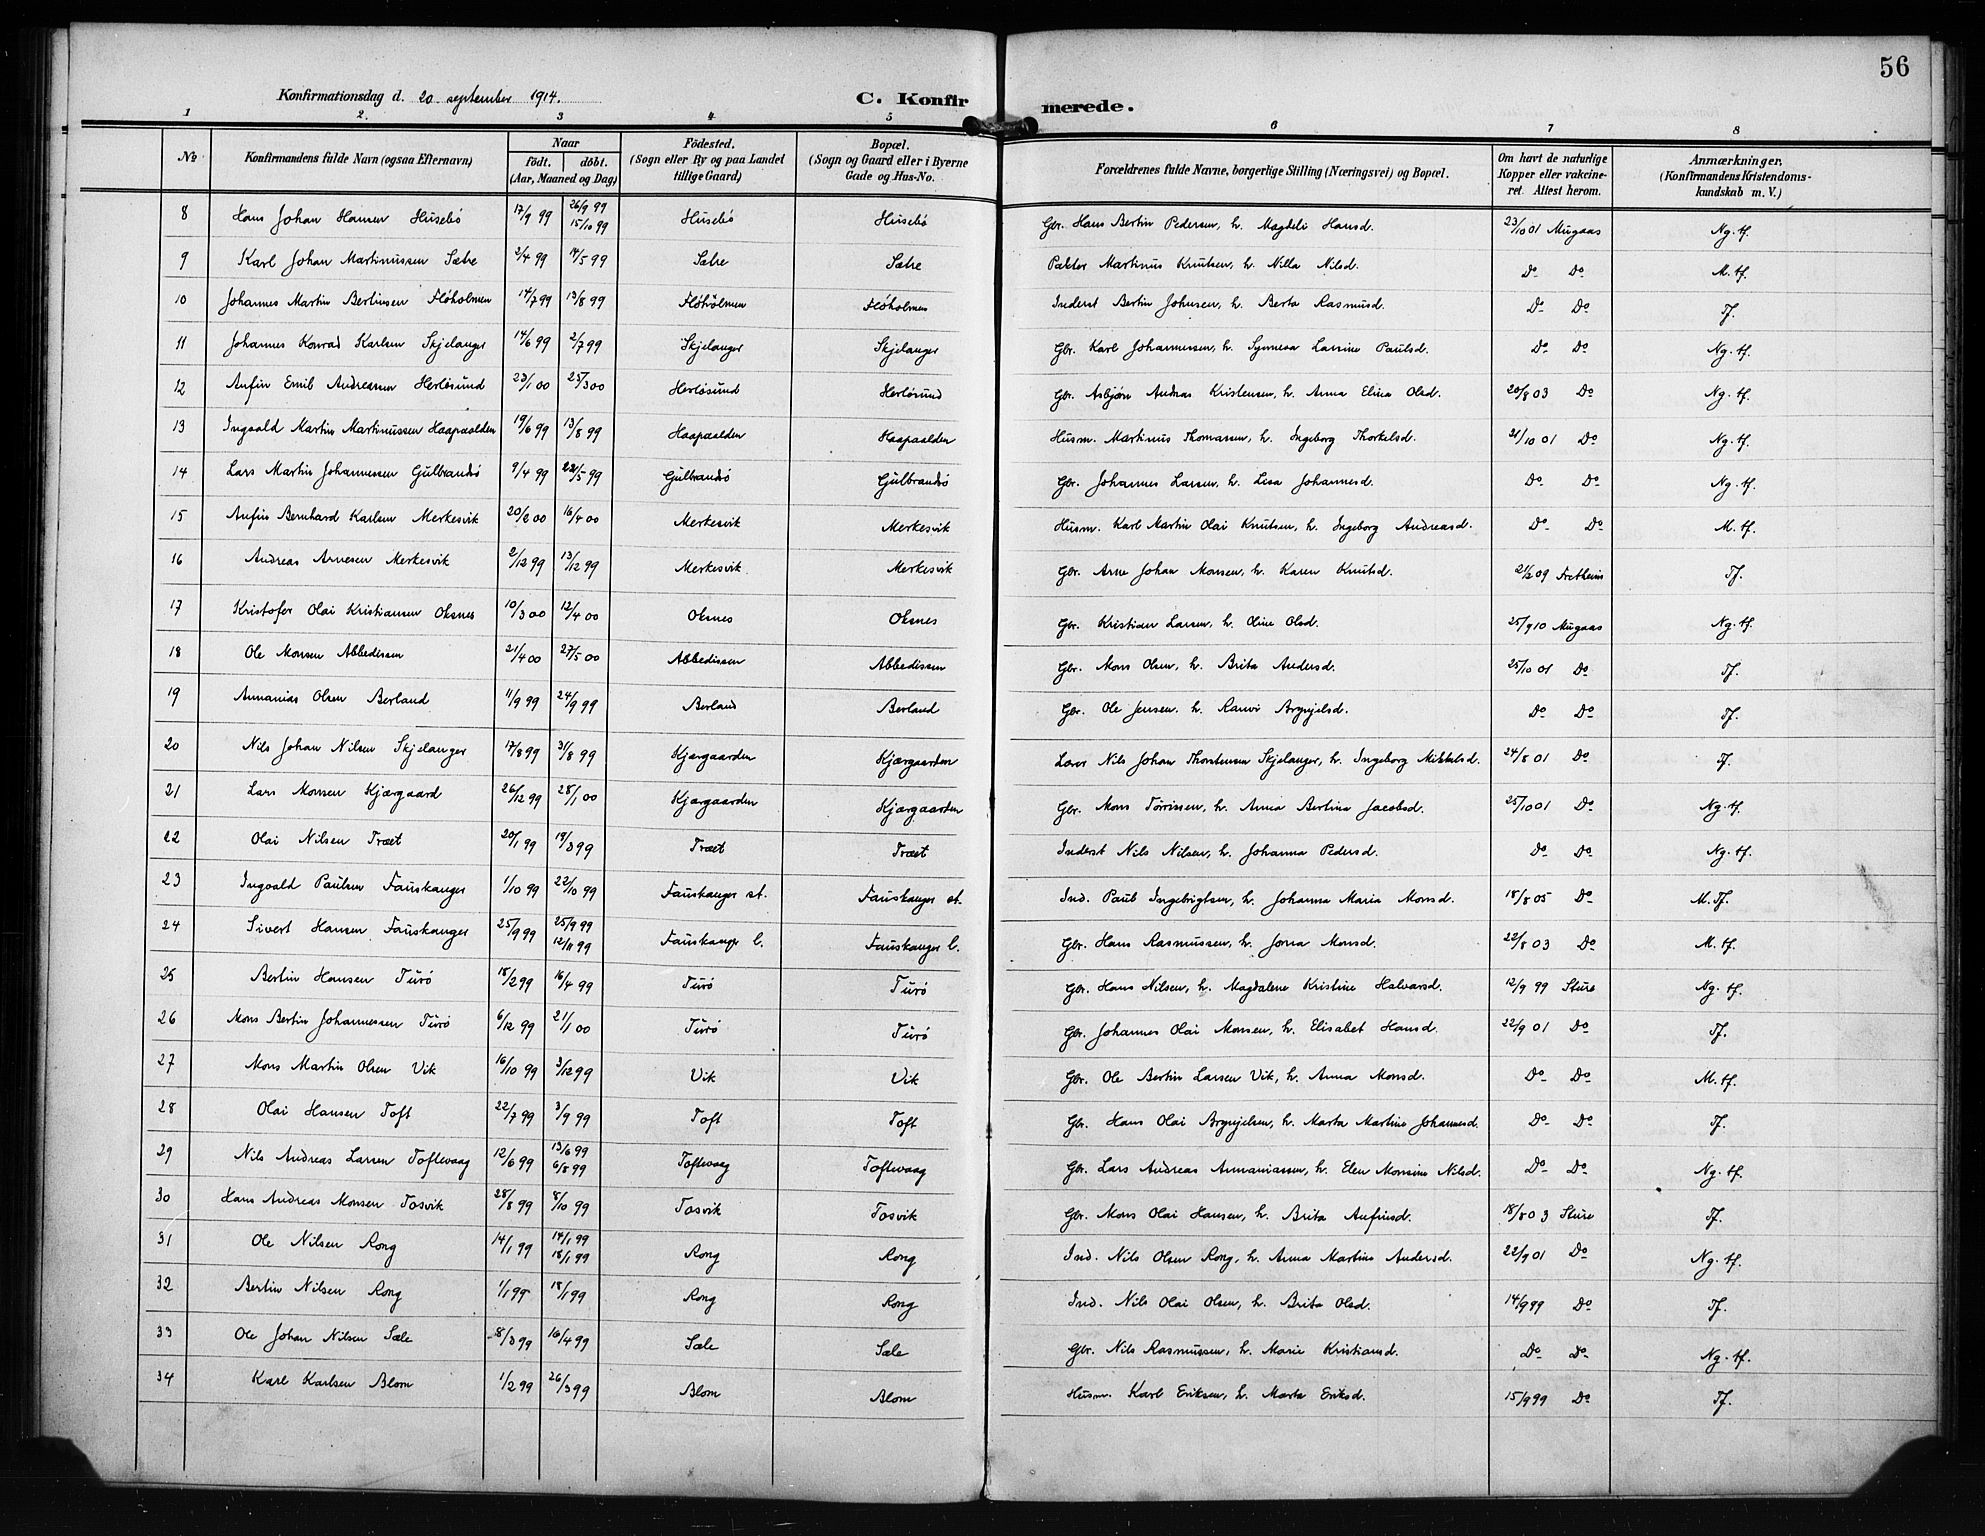 56
Konfirmationsdag d. 20. september 1914. C. Konfirmerede.
1 2. 3 4 5 6 7 8
No Konfirmandens fulde Navn (ogsaa Efternavn) Naar födt. döbt. (Aar, Maaned og Dag) Födested. (Sogn eller By og paa Landet tillige Gaard) Bopæl. (Sogn og Gaard eller i Byerne Gade og Hus-No. Forældrenes fulde Navne, borgerlige Stilling (Næringsvei) og Bopæl. Om havt de naturlige Kopper eller vakcineret. Attest herom. Anmærkninger. (Konfirmandens Kristendomskundskab m. V.)
8 Hans Johan Hansen Husebö 17/9 99 26/9 99 15/10 99 Husebö Husebö Gbr. Hans Bertin Pedersen, h. Magdeli Hansd. 23/10 01 Mugaas Ng. tf.
9 Karl Johan Martinussen Sætre 2/4 99 14/5 99 Sætre Sætre Pakter Martinus Knutsen, h. Nilla Nilsd. Do Do M. tf.
10 Johannes Martin Bertinsen Flöholmen 14/7 99 13/8 99 Flöholmen Flöholmen Inderst Bertin Johnsen, h. Berta Rasmusd. Do Do Tf.
11 Johannes Konrad Karlsen Skjelanger 14/6 99 2/7 99 Skjelanger Skjelanger Gbr. Karl Johannessen, h. Synneva Larsine Paulsd. Do Do Ng. tf.
12 Anfin Emil Andreassen Herlösund 23/1 00 25/3 00 Herlösund Herlösund Gbr. Asbjörn Andreas Kristensen, h. Anna Elina Olsd. 20/8 03 Do Ng. tf.
13 Ingvald Martin Martinussen Haapaalden 19/6 99 13/8 99 Haapaalden Haapaalden Husm. Martinus Thomassen, h. Ingeborg Thorkelsd. 21/10 01 Do Ng. tf.
14 Lars Martin Johannessen Gulbrandsö 9/4 99 22/5 99 Gulbrandsö Gulbrandsö Gbr. Johannes Larsen, h. Lisa Johannesd. Do Do Ng. tf.
15 Anfin Bernhard Karlsen Merkesvik 20/2 00 16/4 00 Merkesvik Merkesvik Husm. Karl Martin Olai Knutsen, h. Ingeborg Andreasd. Do Do M. tf.
16 Andreas Arnesen Merkesvik 2/12 99 13/12 99 Merkesvik Merkesvik Gbr. Arne Johan Monsen, h. Karen Knutsd. 21/2 09 Fretheim Tf.
17 Kristofer Olai Kristiansen Oksnes 10/3 00 12/4 00 Oksnes Oksnes Gbr. Kristian Larsen, h. Oline Olsd. 25/9 10 Mugaas Ng. tf.
18 Ole Monsen Abbedissen 21/4 00 27/5 00 Abbedissen Abbedissen Gbr. Mons Olsen, h. Brita Andersd. 25/10 01 Do Tf.
19 Annanias Olsen Berland 11/9 99 24/9 99 Berland Berland Gbr. Ole Jensen. h. Ranvi Brynjelsd. Do Do Tf.
20 Nils Johan Nilsen Skjelanger 17/8 99 31/8 99 Kjærgaarden Kjærgaarden Lærer Nils Johan Thorstensen Skjelanger, h. Ingeborg Mikkelsd. 24/8 01 Do Tf.
21 Lars Monsen Kjærgaard 26/12 99 28/1 00 Kjærgaarden Kjærgaarden Gbr. Mons Törrissen, h. Anna Bertina Jacobsd. 25/10 01 Do Ng. tf.
22 Olai Nilsen Træet 20/1 99 19/3 99 Træet Træet Inderst Nils Nilsen, h. Johanna Pedersd. Do Do Ng. tf.
23 Ingvald Paulsen Fauskanger 1/10 99 22/10 99 Fauskanger st. Fauskanger st. Ind. Paul Ingebrigtsen, h. Johanna Maria Monsd. 18/8 05 Do M. Tf.
24 Sivert Hansen Fauskanger 25/9 99 25/9 99 12/11 99 Fauskanger l. Fauskanger l. Gbr. Hans Rasmussen, h. Jona Monsd. 22/8 03 Do M. tf.
25 Bertin Hansen Turö 18/2 99 16/4 99 Turö Turö Gbr. Hans Nilsen, h. Magdalene Kristine Halvarsd. 12/9 99 Sture Ng. tf.
26 Mons Bertin Johannessen Turö 6/12 99 21/1 00 Turö Turö Gbr. Johannes Olai Monsen, h. Elisabet Hansd. 22/9 01 Do Tf.
27 Mons Martin Olsen Vik 16/10 99 3/12 99 Vik Vik Gbr. Ole Bertin Larsen Vik, h. Anna Monsd. Do Do M. tf.
28 Olai Hansen Toft 22/7 99 3/9 99 Toft Toft Gbr. Hans Olai Brynjelsen, h. Marta Martine Johannesd. Do Do Tf.
29 Nils Andreas Larsen Toftevaag 12/6 99 13/6 99 6/8 99 Toftevaag Toftevaag Gbr. Lars Andreas Annaniassen, h. Elen Monsine Nilsd. Do Do Ng. tf.
30 Hans Andreas Monsen Tosvik 28/8 99 8/10 99 Tosvik Tosvik Gbr. Mons Olai Hansen, h. Brita Anfinsd. 18/8 03 Sture Tf.
31 Ole Nilsen Rong 14/1 99 14/1 99 18/1 99 Rong Rong Ind. Nils Olsen Rong, h. Anna Martine Andersd. 22/9 01 Do Ng. tf.
32 Bertin Nilsen Rong 1/1 99 18/1 99 Rong Rong Ind. Nils Olai Olsen, h. Brita Olsd. 14/9 99 Do Tf.
33 Ole Johan Nilsen Sæle 8/3 99 16/4 99 Sæle Sæle Gbr. Nils Rasmussen, h. Marie Kristiansd. Do Do Ng. tf.
34 Karl Karlsen Blom 1/2 99 26/3 99 Blom Blom Husm. Karl Eriksen, h. Marta Eriksd. 15/9 99 Do Tf.